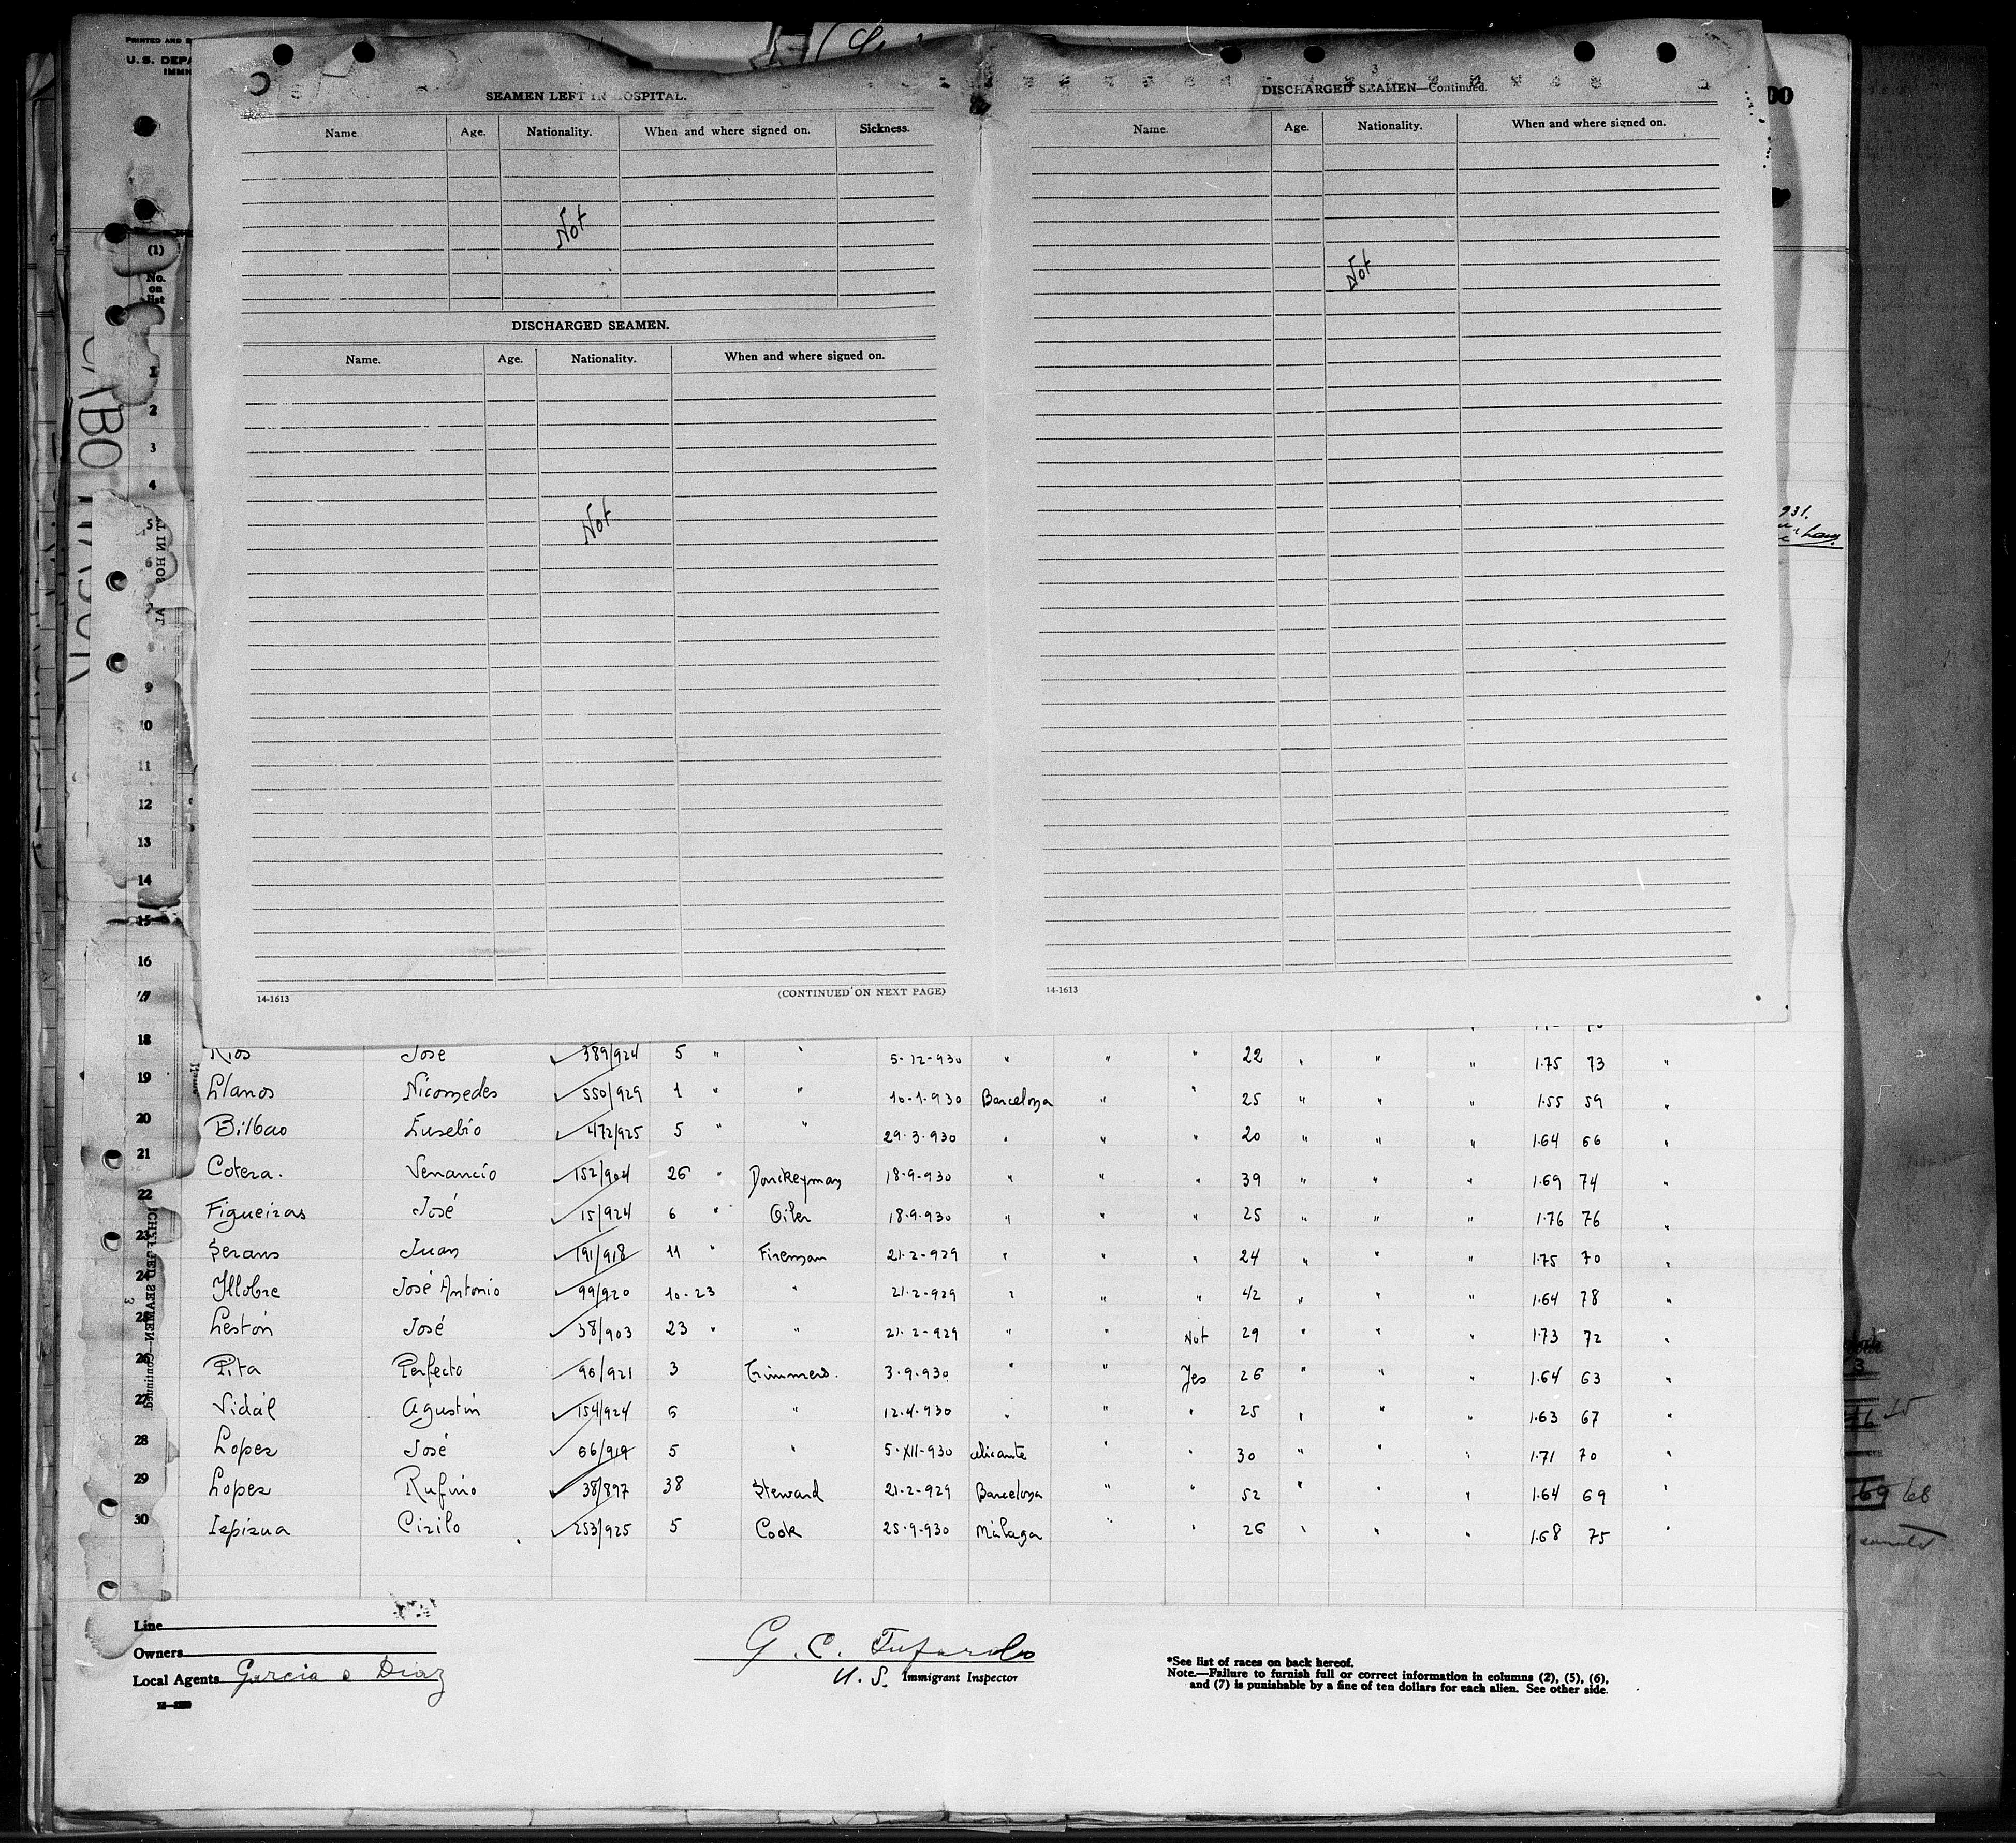 PRINTED AND
U. S. DEPA
IMMI
(1)
No.
on
list
SEAMEN LEFT IN HOSPITAL.
Name. Age. Nationality. When and where signed on. Sickness.
Not
DISCHARGED SEAMEN.
Name. Age. Nationality. When and where signed on.
Not
14-1613 (CONTINUED ON NEXT PAGE)
DISCHARGED SEAMEN—Continued.
Name. Age. Nationality. When and where signed on.
Not
14-1613
00
931.
CABO
2
3
4
5
6
9
10
11
12
13
14
15
16
17
18 Rios José 389/924 5 " " 5-12-930 " " " 22 " " " 1.75 73 "
19 Llanos Nicomedes 550/929 1 " " 10-1-930 Barcelona " " 25 " " " 1.55 59 "
20 Bilbao Eusebio 472/925 5 " " 29-3-930 " " " 20 " " " 1.64 66 "
21 Cotera. Venancio 152/904 26 " Donckeyman 18-9-930 " " " 39 " " " 1.69 74 "
22 Figueiras José 15/924 6 " Oiler 18-9-930 " " " 25 " " " 1.76 76 "
23 Serans Juan 191/918 11 " Fireman 21-2-929 " " " 24 " " " 1.75 70 "
24 Yllobre José Antonio 99/920 10-23 " 21-2-929 " " " 42 " " " 1.64 78 "
25 Lestón José 38/903 23 " " 21-2-929 " " Not 29 " " " 1.73 72 "
26 Pita Perfecto 96/921 3 Trimmers. 3-9-930 " " Yes 26 " " " 1.64 63 "
27 Vidál Agustin 154/924 6 " 12-4-930 " " " 25 " " " 1.63 67 "
28 Lopez José 66/919 5 " 5-XII-930 Alicante " " 30 " " 1.71 70 "
29 Lopez Rufino 38/897 38 Steward 21-2-929 Barcelona " " 52 " " " 1.64 69 "
30 Izpizua Cirilo 253/925 5 Cook 25-9-930 Málaga " " 26 " " " 1.68 75 "
69 68
Line
Owners
Local Agents Garcia & Diaz
G. C. Tufarolo
U. S. Immigrant Inspector
*See list of races on back hereof.
Note.—Failure to furnish full or correct information in columns (2), (5), (6),
and (7) is punishable by a fine of ten dollars for each alien. See other side.